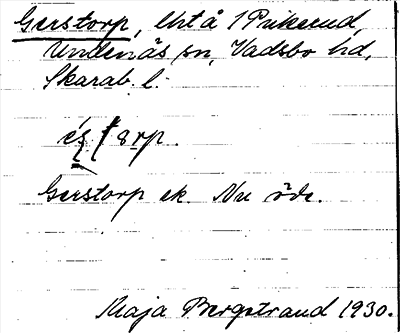 Gerstorp, lht å 1 Prikerud,
Undenäs sn, Vadsbo hd,
Skarab. l.
Gerstorp ek. Nu öde.
Maja Bergstrand 1930.